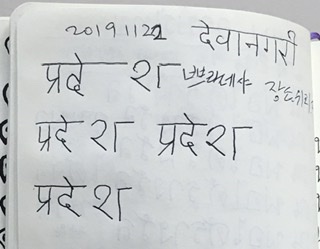 20191122 देवानगरी
प्रदे श 쁘라데샤
प्रदे श प्रदेश
प्रदेश